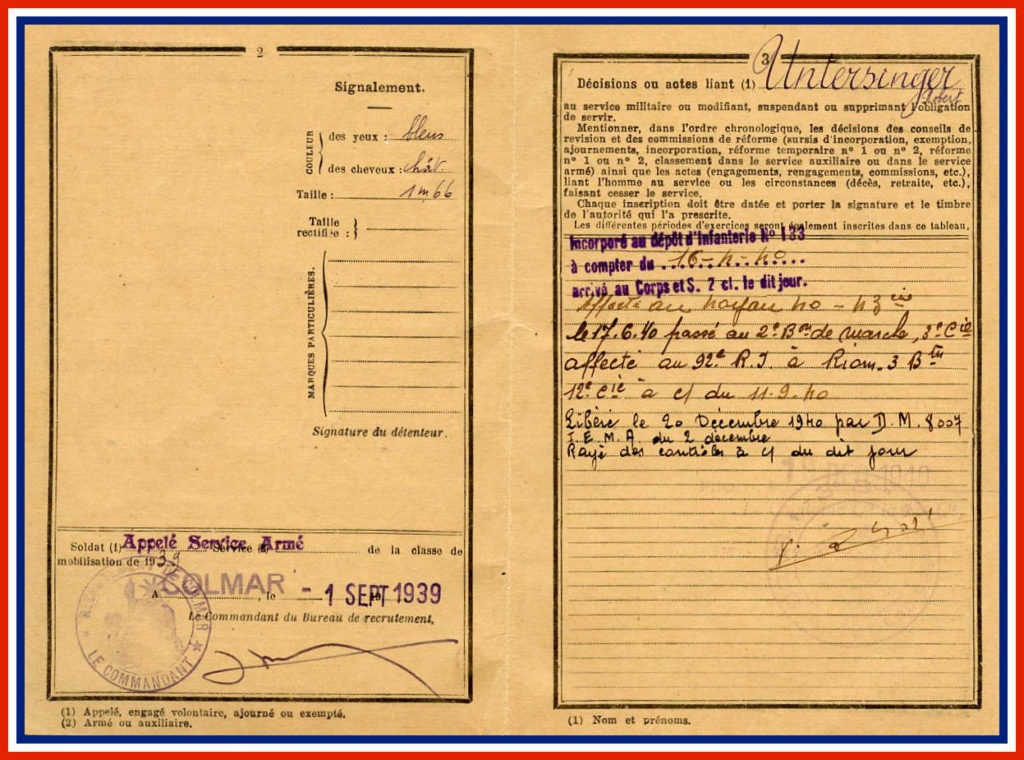 2
Signalement.
COULEUR
des yeux : bleus
des cheveux : chât.
Taille : 1m66
Taille
rectifiée :
MARQUES PARTICULIÈRES.
Signature du détenteur.
Soldat (1) Appelé Service Armé de la classe de
mobilisation de 1939
A COLMAR le - 1 SEPT 1939
Le Commandant du Bureau de recrutement,
LE COMMANDANT
(1) Appelé, engagé volontaire, ajourné ou exempté.
(2) Armé ou auxiliaire.
3
Décisions ou notes liant (1) Untersinger
Robert
au service militaire ou modifiant, suspendant ou supprimant l'obligation
de servir.
Mentionner, dans l'ordre chronologique, les décisions des conseils de
revision et des commissions de réforme (sursis d'incorporation, exemption,
ajournements, incorporation, réforme temporaire n° 1 ou n° 2, réforme
n° 1 ou n° 2, classement dans le service auxiliaire ou dans le service
armé) ainsi que les actes (engagements, rengagements, commissions, etc.),
liant l'homme au service ou les circonstances (décès, retraite, etc.),
faisant cesser le service.
Chaque inscription doit être datée et porter la signature et le timbre
de l'autorité qui l'a prescrite.
Les différentes périodes d'exercices seront également inscrites dans ce tableau.
Incorporé au dépôt d'Infanterie N° 133
à compter du 16-4-40
arrivé au Corps et S. 2 cl. le dit jour.
Affecté au noyau 40 - 43 cie
le 17.6.40 passé au 2e Bon de marche, 3e Cie
affecté au 92e R.I. à Riom. 3 Bon
12e Cie à c/ du 11.9.40
Libéré le 20 Décembre 1940 par D.M. 8007
I.E.M.A. du 2 décembre
Rayé des contrôles à c/ du dit jour